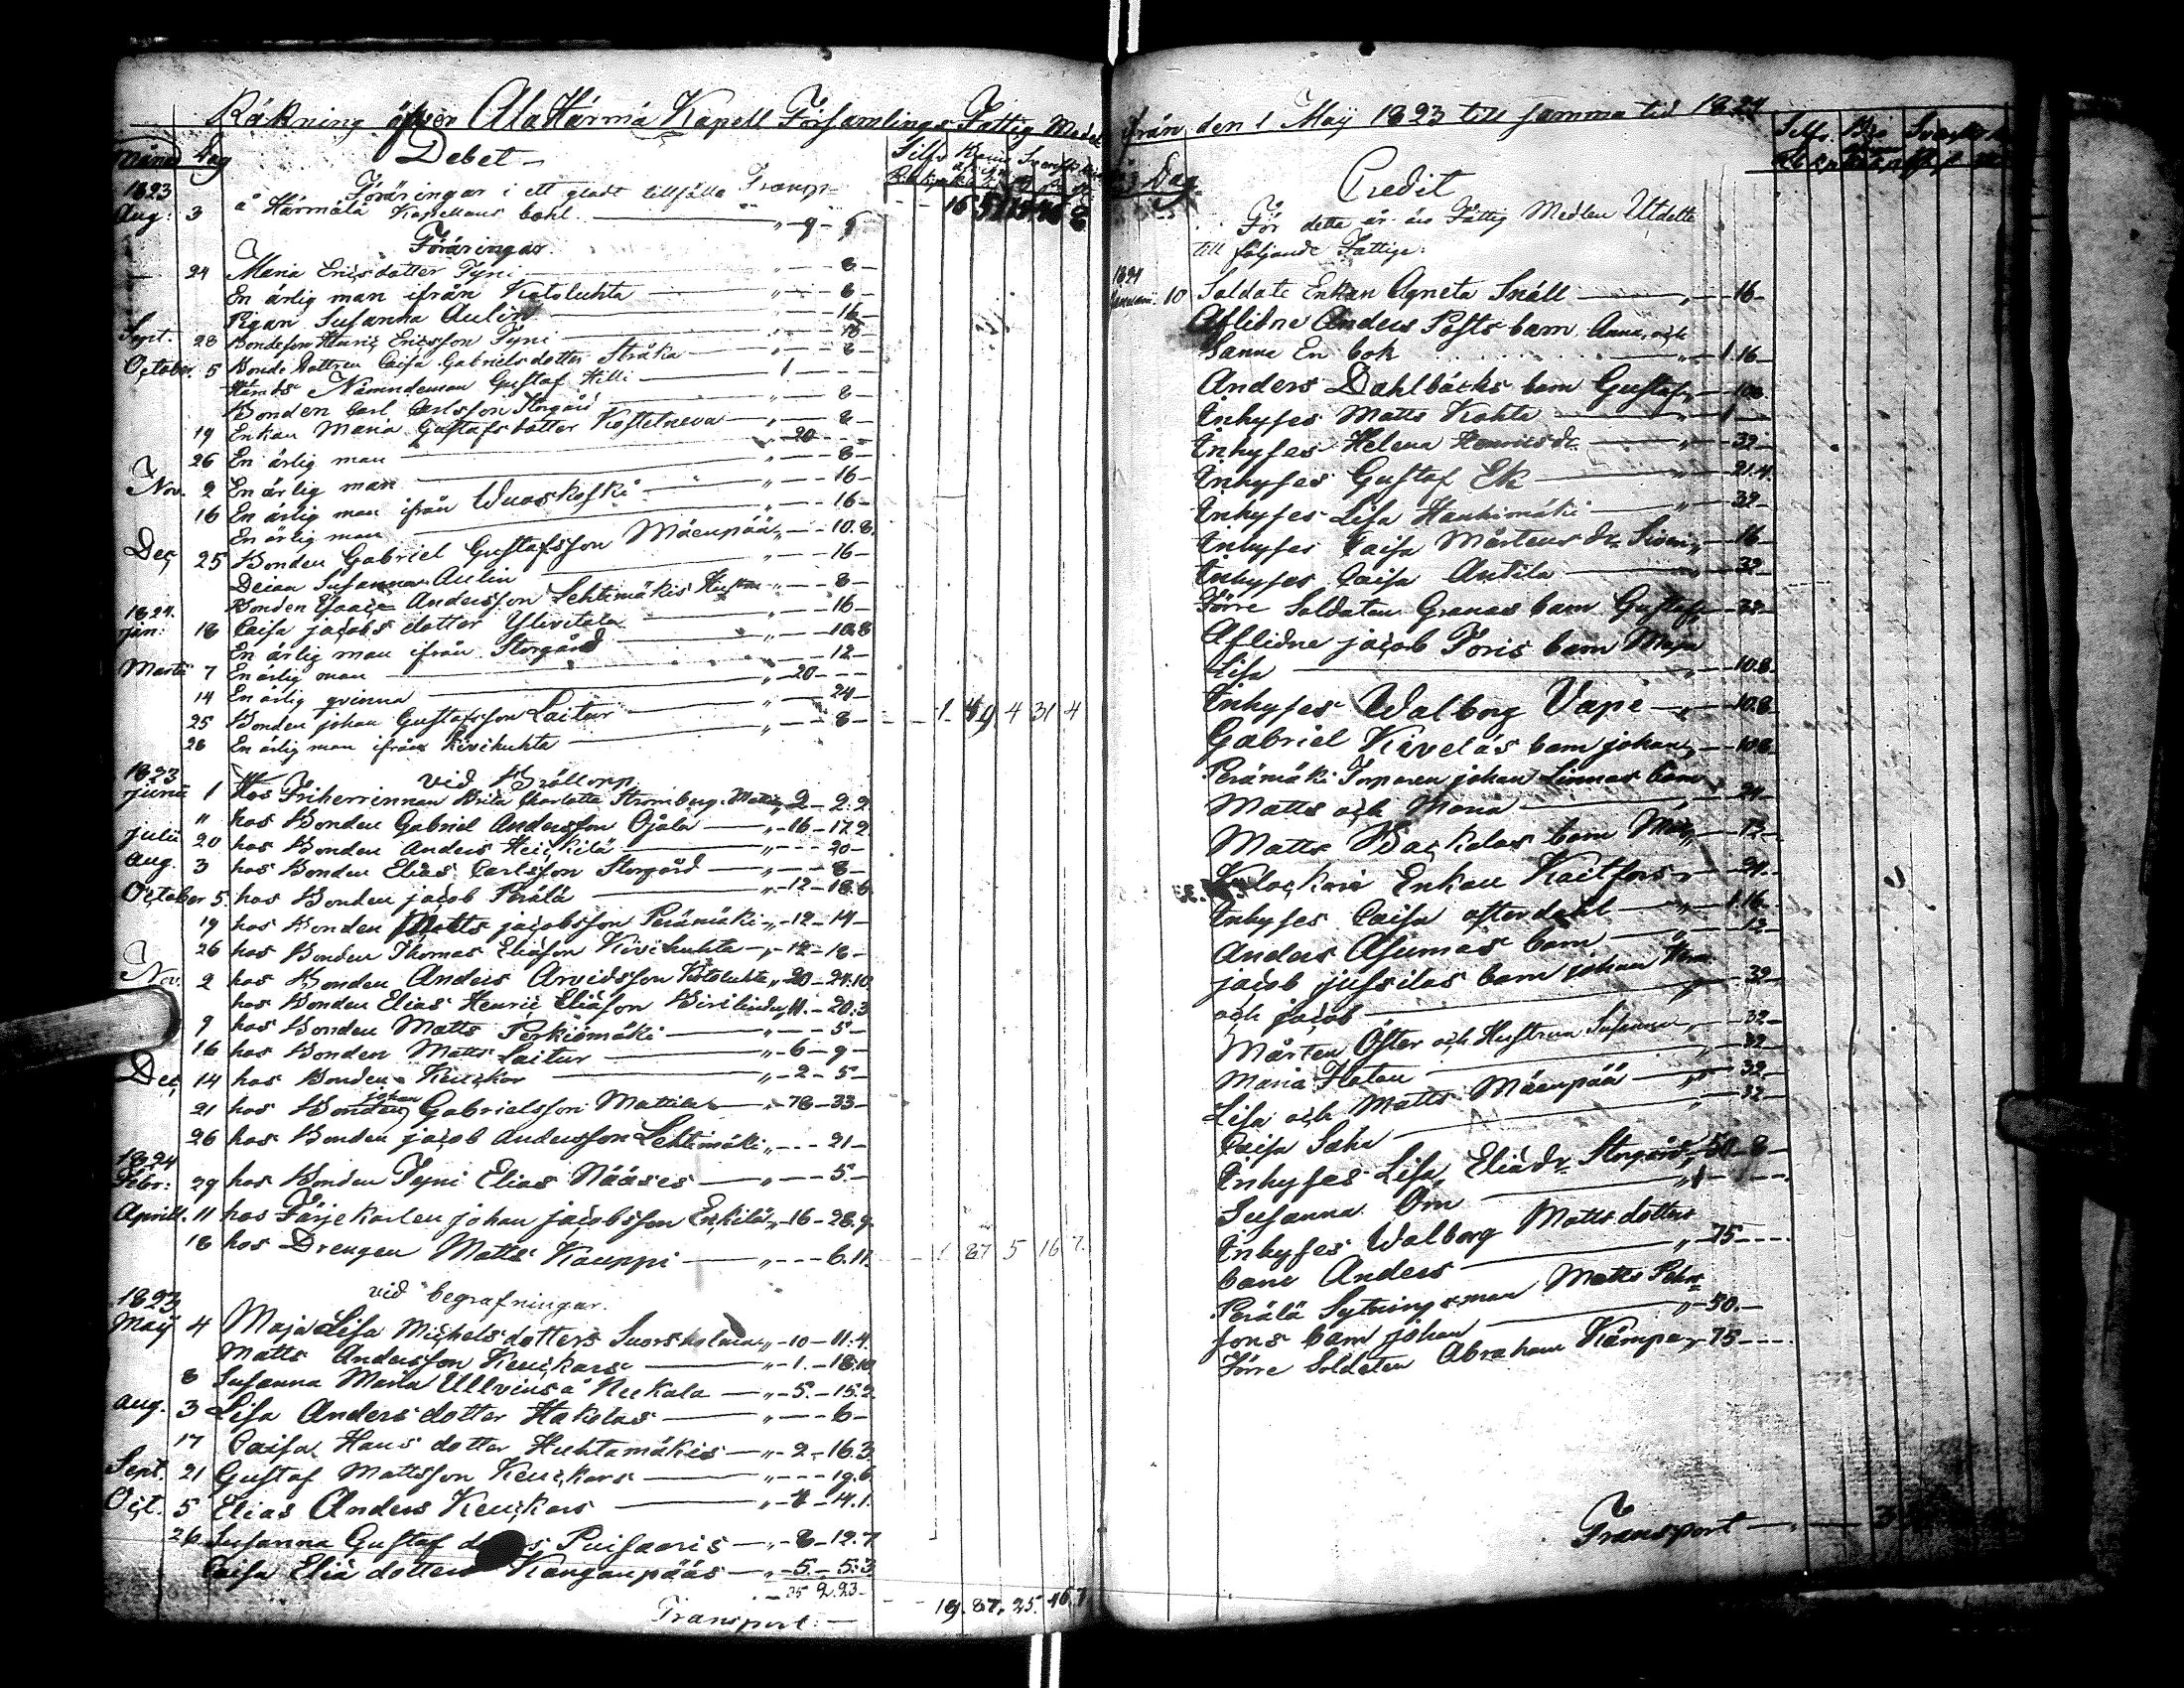 Räkning öfver Ala Härmä Kapell Församlings Fattig Medel
Månad Dag Debet Silfv
1823 Föräringar i ett gladt tillfälle Transp
Aug: 3 å Härmälä Kapellans bohl
Föräringar.
24 Maria Ericsdotter Tyni 8
En ärlig man ifrån Kotoluhta 8
Pigan Susanna Aulin 16
Sept. 28 Bondeson Henric Ericsson Tyni 16
October 5 Bonde Dottren Caisa Gabrielsdotter Stråka 8
Härads Nämndeman Gustaf Hilli 1
Bonden Carl Carlsson Storgård 8
19 Enkan Maria Gustafsdotter 8
26 En ärlig man 20
Nov. 2 En ärlig man 8
16 En ärlig man ifrån Wuoskoski 16
En ärlig man 16
Dec 25 Bonden Gabriel Gustafsson Mäenpää 10.8.
Deian Susanna Aulin 16
1824. Bonden Isaac Andersson Lehtimäkis Hustru 8
Jan: 18 Caisa Jacobs dotter Ylivitala 16
En ärlig man ifrån Storgård 10.8
Martii 7 En ärlig man 12
14 En ärlig qvinna 20
25 Bonden Johan Gustafsson Laitur 24
28 En ärlig man ifrån Kivihuhta 8 1 49 4 31 4
1823 vid Bröllopp.
Junii 1 Hos Friherrinnan Brita Charlotta Stromberg 2 2.2.
" hos Bonden Gabriel Andersson Ojala 16 17.2
Julii 20 hos Bonden Anders Heickilä 20
Aug. 3 hos Bonden Elias Carlsson Storgård 8
October 5. hos Bonden Jacob Perälä 12 18.6
19 hos Bonden Matts Jacobsson Perämäki 12 14
26 hos Bonden Thomas Eliasson Kivihuhta 12 18
Nov. 2 hos Bonden Anders Arvidsson Kotoluhta 20 24.10
hos Bonden Elias Henric Eliasson 11. 20.3
9 hos Bonden Matts Perkiömäki 5
16 hos Bonden Matts Laitur 6 9
Dec 14 hos Bonden Keuckor 2 5
21 hos Bonden Johan Gabrielsson Mattila 78 33
26 hos Bonden Jacob Andersson Lehtimäki 21
1824
Febr: 29 hos Bonden Tyni Elias Nääses 5.
Aprill. 11 hos Färjekarlen Johan Jacobsson Erkilä 16 28.9.
18 hos Drengen Matts Kauppi 6.11. 1 87 5 16 7.
1823 vid begrafningar.
Maij 4 Maja Lisa Michelsdotters Suorsholma 10 11.4.
Matts Andersson Keuckars 1. 18.10
8 Susanna Maria Ullvins å Neckala 5. 15.2.
Aug. 3 Lisa Anders dotter Hakolas 6
17 Caisa Hans dotter Huhtamäkis 2 16.3
Sept. 21 Gustaf Mattsson Keuckars 19.6
Oct. 5 Elias Anders Keuckars 4 14.1.
26 Susanna Gustaf Puisaaris 8 12.7
Caisa Elia dotters Kanganpääs 5 5.3
Transport 19. 87. 25. 46.7
från den 1 Maij 1823 till samma tid 1824
Dag Credit
För detta år äro Fattig Medlen Utdelte
till följande Fattige:
1824
Januari. 10 Soldats Enkan Agneta Snäll 16
Aflidne Anders Posts barn Anna, och
Sanna En bok 1.16
Anders Dahlbäcks barn Gustaf 10.8.
Inhyses Matts Kohta 1
Inhyses Helena Henricsdr. 32
Inhyses Gustaf Ek 21.4.
Inhyses Lisa Hanhimäki 32
Inhyses Caisa Mårtensdr. 16
Inhyses Caisa Antila 32
Förre Soldaten Granas barn Gustaf 32
Aflidne Jacob Joris barn Maja
Lisa 10.8.
Inhyses Walborg Vape 10.8
Gabriel Kiveläs barn Johan 10.8
Perämäki Torparen Johan Linnas barn
Matts och Maria 24
Matts Backolas barn 12
Klockari Enkan Kaitfors 24.
Inhyses Caisa afterdahl 1.16
Anders Asumas barn 12
Jacob Jussilas barn Johan
och Jacob 32
Mårten Öster och Hustrun Susanna 32
Maria Flatan 32
Lisa och Matts Mäenpää 32
Caisa Saha 32
Inhyses Lisa Eliædr. Storgård 50 8
Susanna Örn 1
Inhyses Walborg Mattsdotters
barn Anders 75
Perälä Sytningsman Matts Pehr-
sons barn Johan 50.
Förre Soldaten Abraham Kämpe 75
Transport